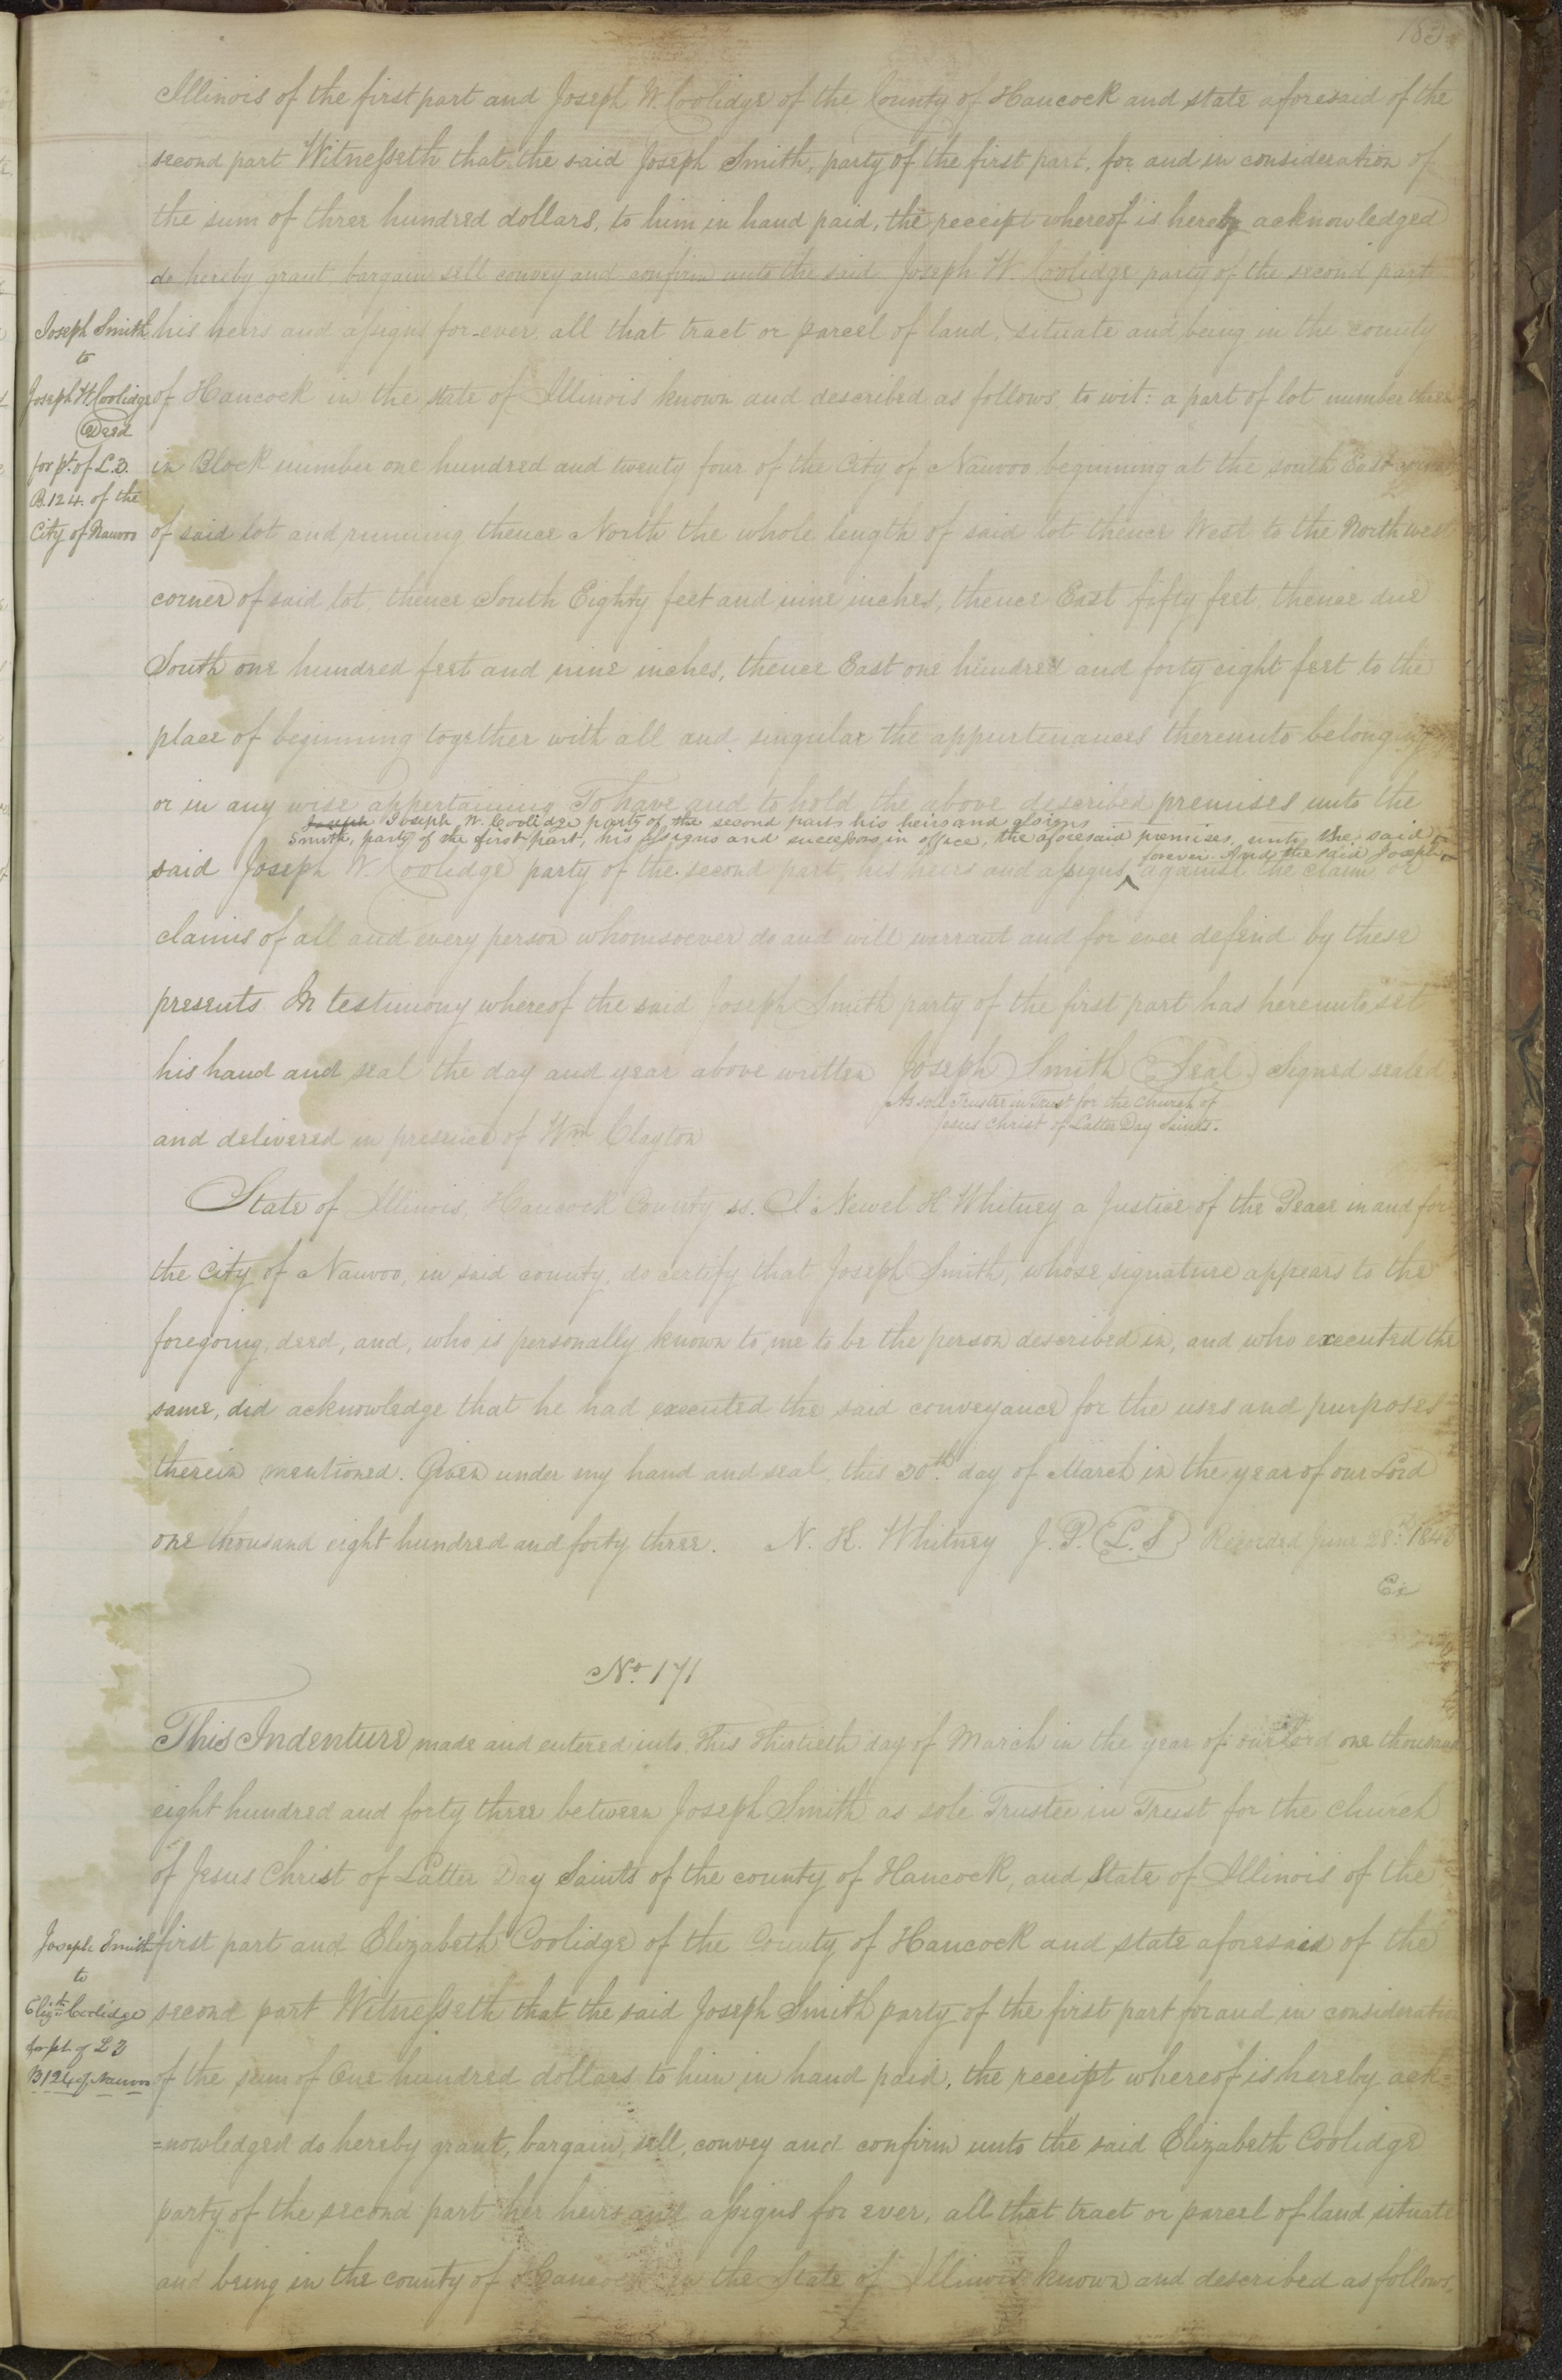 183
Illinois of the first part and Joseph W. Coolidge of the County of Hancock and state aforesaid of the
second part Witnesseth that the said Joseph Smith, party of the first part, for and in consideration of
the sum of three hundred dollars, to him in hand paid, the receipt whereof is hereby acknowledged
do hereby grant bargain sell convey and confirm unto the said Joseph W. Coolidge party of the second part
his heirs and assigns for-ever, all that tract or parcel of land, situate and being in the county
Joseph Smith
to
Joseph W. Coolidge
Deed
for pt. of L.3.
B.124. of the
City of Nauvoo
of Hancock in the state of Illinois known and described as follows, to wit: a part of lot number three
in Block number one hundred and twenty four of the City of Nauvoo beginning at the south East corner
of said lot and running thence North the whole length of said lot thence West to the North west
corner of said lot, thence South Eighty feet and nine inches, thence East fifty feet, thence due
South one hundred feet and nine inches, thence East one hundred and forty eight feet to the
place of beginning together with all and singular the appurtinances thereunto belonging
or in any wise appertaining To have and to hold the above described premises unto the
Joseph Joseph W. Coolidge party of the second part his heirs and assigns
Smith, party of the first part, his assigns and successors in office, the aforesaid premises, unto the said
forever. And the said Joseph
said Joseph W. Coolidge party of the second part, his heirs and assigns, ^ against the claim or
claims of all and every person whomsoever do and will warrant and for ever defend by these
presents. In testimony whereof the said Joseph Smith party of the first part has hereunto set
his hand and seal the day and year above written Joseph Smith (Seal) Signed sealed
As sole Trustee in Trust for the Church of
Jesus Christ of Latter Day Saints.
and delivered in presence of Wm Clayton
State of Illinois, Hancock County ss. I Newel K. Whitney a Justice of the Peace in and for
the City of Nauvoo, in said county, do certify that Joseph Smith, whose signature appears to the
foregoing, deed, and, who is personally known to me to be the person described in, and who executed the
same, did acknowledge that he had executed the said conveyance for the uses and purposes
therein mentioned. Given under my hand and seal, this 30th day of March in the year of our Lord
one thousand eight hundred and forty three. N. K. Whitney J. P. (L.S) Recorded June 28th 1843
Ex
No. 171
This Indenture made and entered into This Thirtieth day of March in the year of our Lord one thousand
eight hundred and forty three between Joseph Smith as sole Trustee in Trust for the church
of Jesus Christ of Latter Day Saints of the county of Hancock, and State of Illinois of the
first part and Elizabeth Coolidge of the County of Hancock and state aforesaid of the
Joseph Smith
to
Elizth Coolidge
for pt of L 3
B 124 of Nauvoo
second part Witnesseth that the said Joseph Smith party of the first part for and in consideration
of the sum of One hundred dollars to him in hand paid, the receipt whereof is hereby ack=
=nowledged do hereby grant, bargain, sell, convey and confirm unto the said Elizabeth Coolidge
party of the second part her heirs and assigns for ever, all that tract or parcel of land situate
and being in the county of Hancock in the State of Illinois known and described as follows,